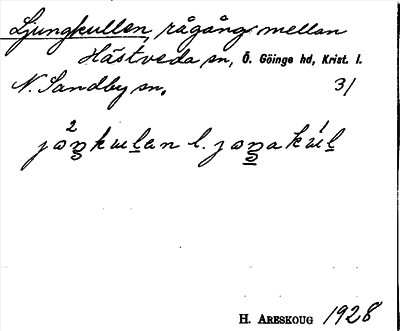 Ljungkullen, rågång mellan
Hästveda sn, Ö. Göinge hd, Krist. l.
N. Sandby sn. 31
l.
H. Areskoug 1928